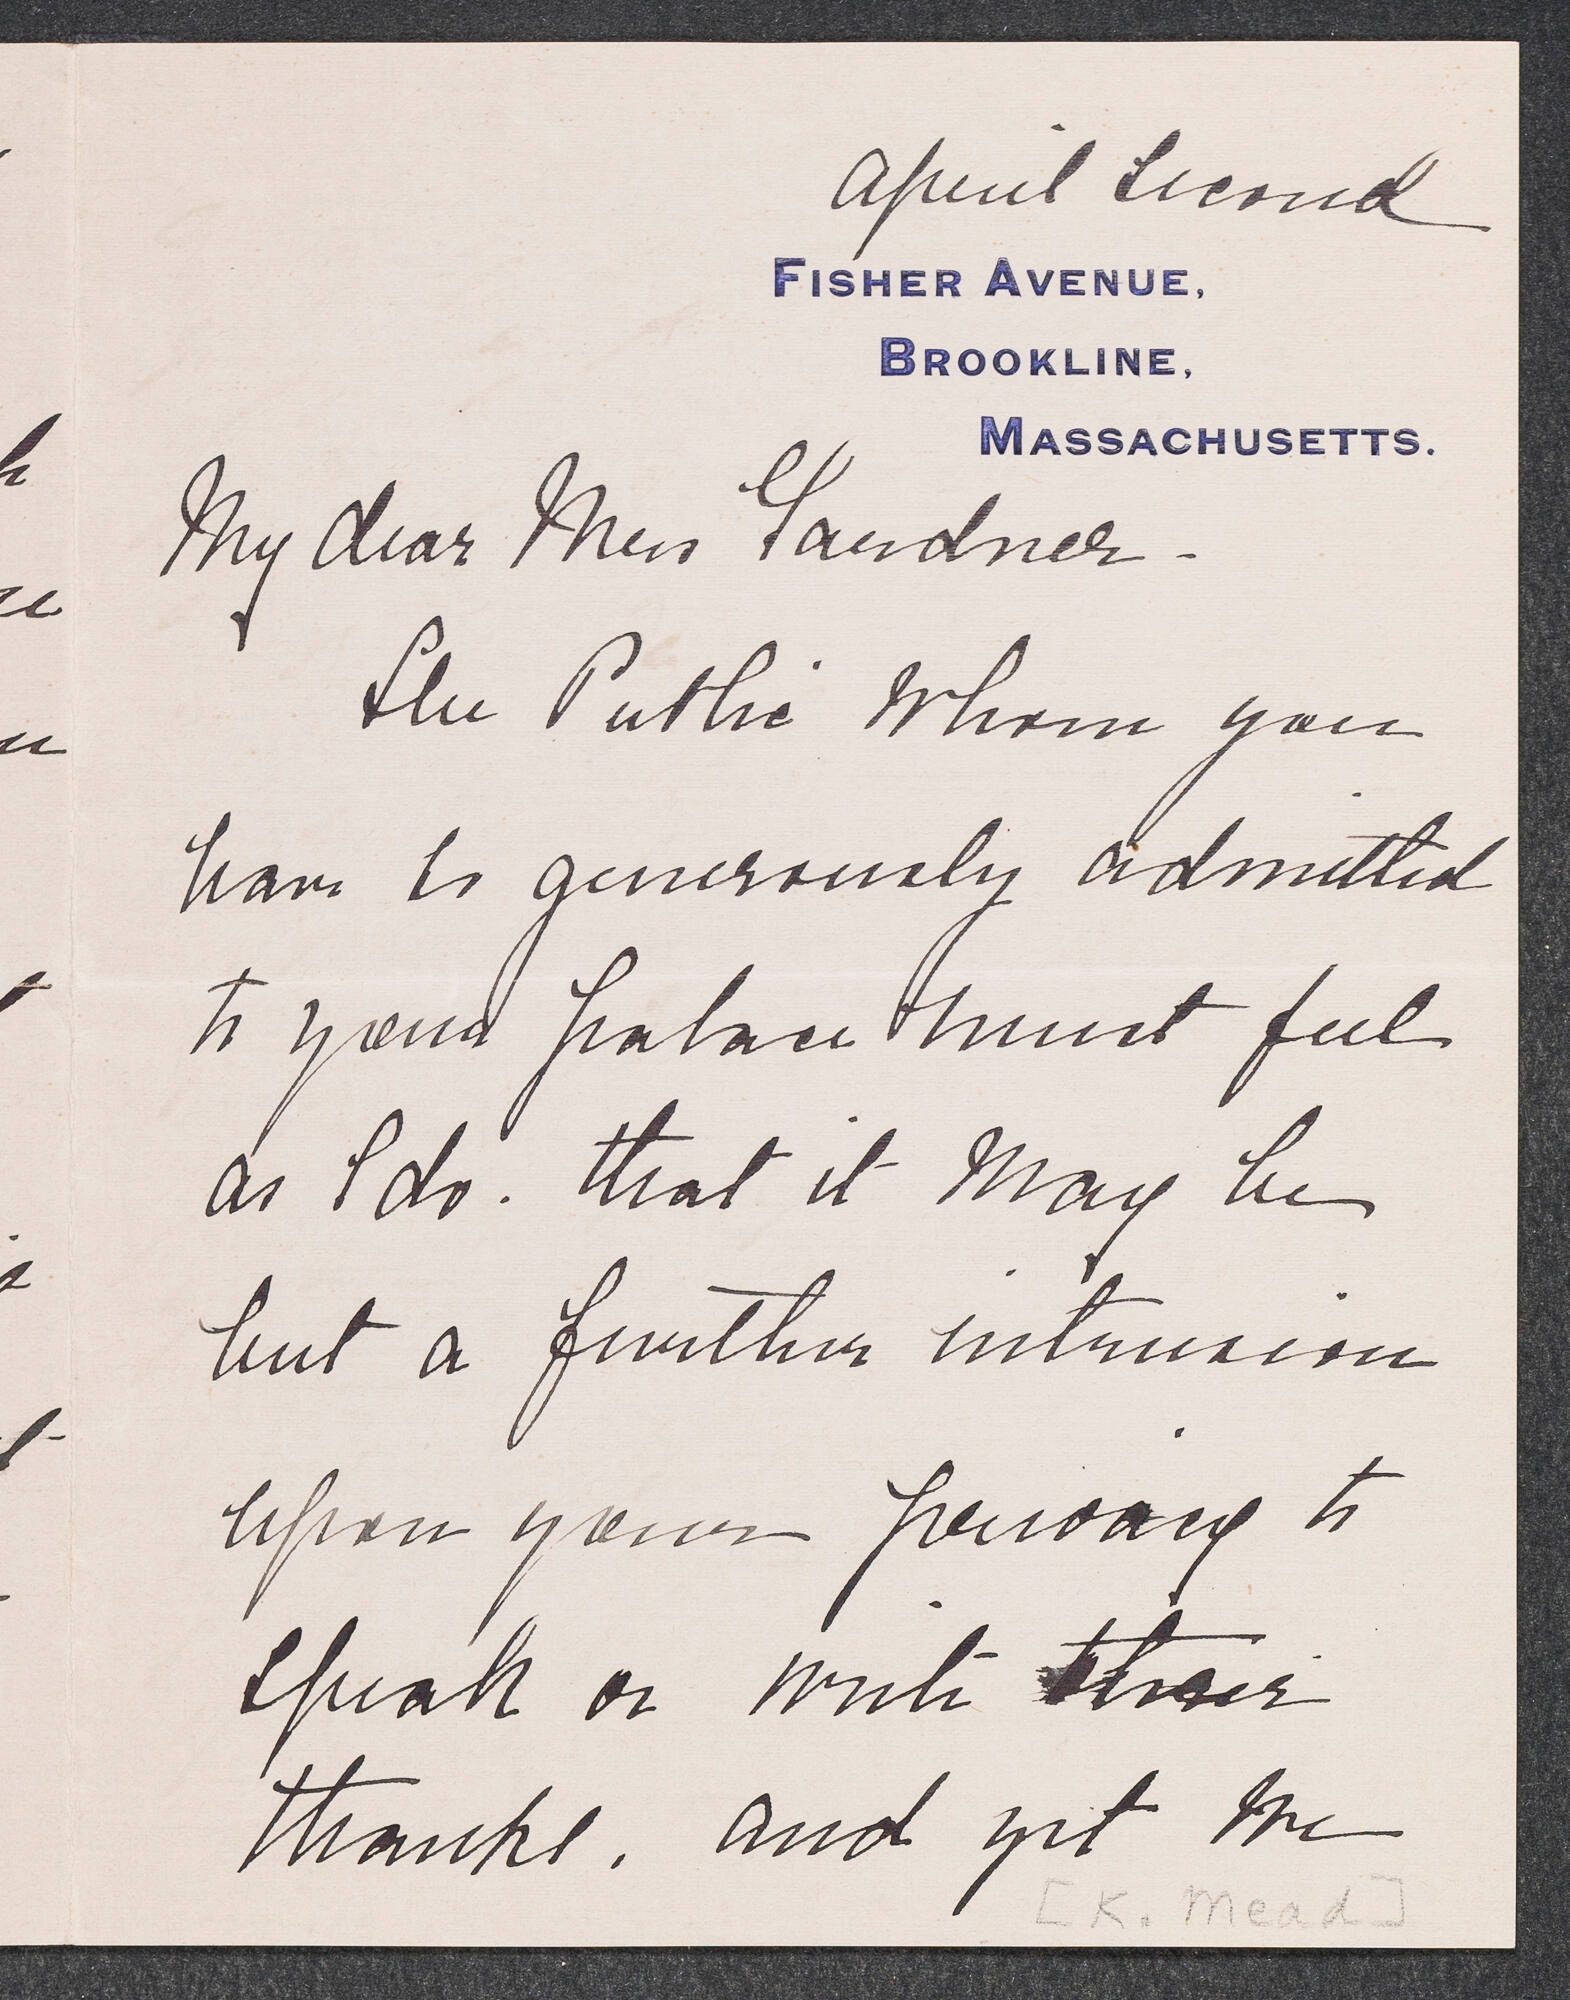 April Second
FISHER AVENUE,
BROOKLINE,
MASSACHUSETTS.
My dear Mrs Gardner -
The Public whom you
have so generously admitted
to your palace must feel
as I do. that it may be
but a further intrusion
upon your privacy to
speak or write their
thanks. and yet we
[K. Mead]